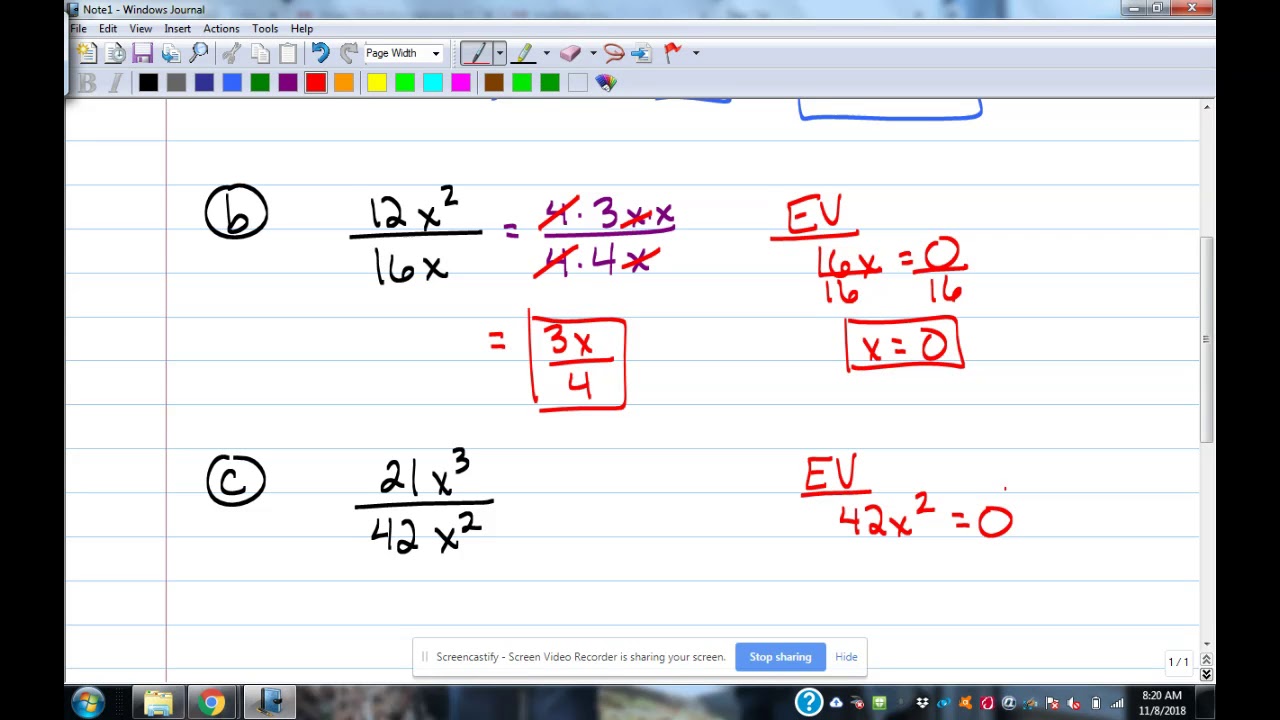 Note1 - Windows Journal
File Edit View Insert Actions Tools Help
Page Width
B I
b 12x² / 16x = 4·3x·x / 4·4x EV
16x = 0
16 16
= 3x / 4 x = 0
c 21x³ / 42x² EV
42x² = 0
Screencastify - Screen Video Recorder is sharing your screen. Stop sharing Hide
1 / 1
8:20 AM
11/8/2018